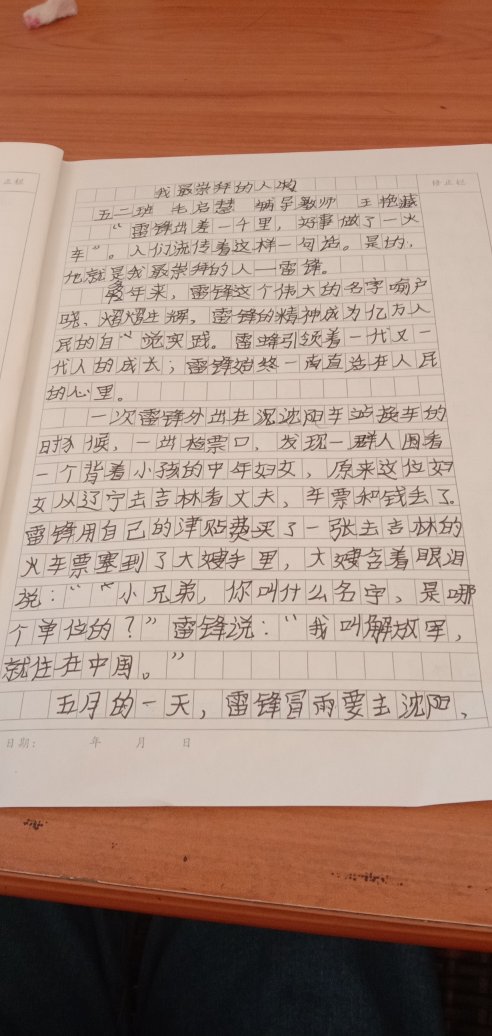 正栏
修正栏
我最崇拜的人物
五二班 毛启慧 辅导教师 王艳
“雷锋出差一千里，好事做了一火
车”。人们流传着这样一句话。是的，
他就是我最崇拜的人—雷锋。
多年来，雷锋这个伟大的名字喻户
晓、熠熠生辉，雷锋的精神成为亿万人
民的自觉实践。雷蜂引领着一代又一
代人的成长；雷锋始终一直活在人民
的心里。
一次雷锋外出在沈沈阳车站换车的
时候，一出检票口，发现一群人围着
一个背着小孩的中年妇女，原来这位妇
女从辽宁去吉林看丈夫，车票和钱丢了。
雷锋用自己的津贴费买了一张去吉林的
火车票塞到了大嫂手里，大嫂含着眼泪
说：“小兄弟，你叫什么名字、是哪
个单位的？”雷锋说：“我叫解放军，
就住在中国。”
五月的一天，雷锋冒雨要去沈阳，
日期： 年 月 日